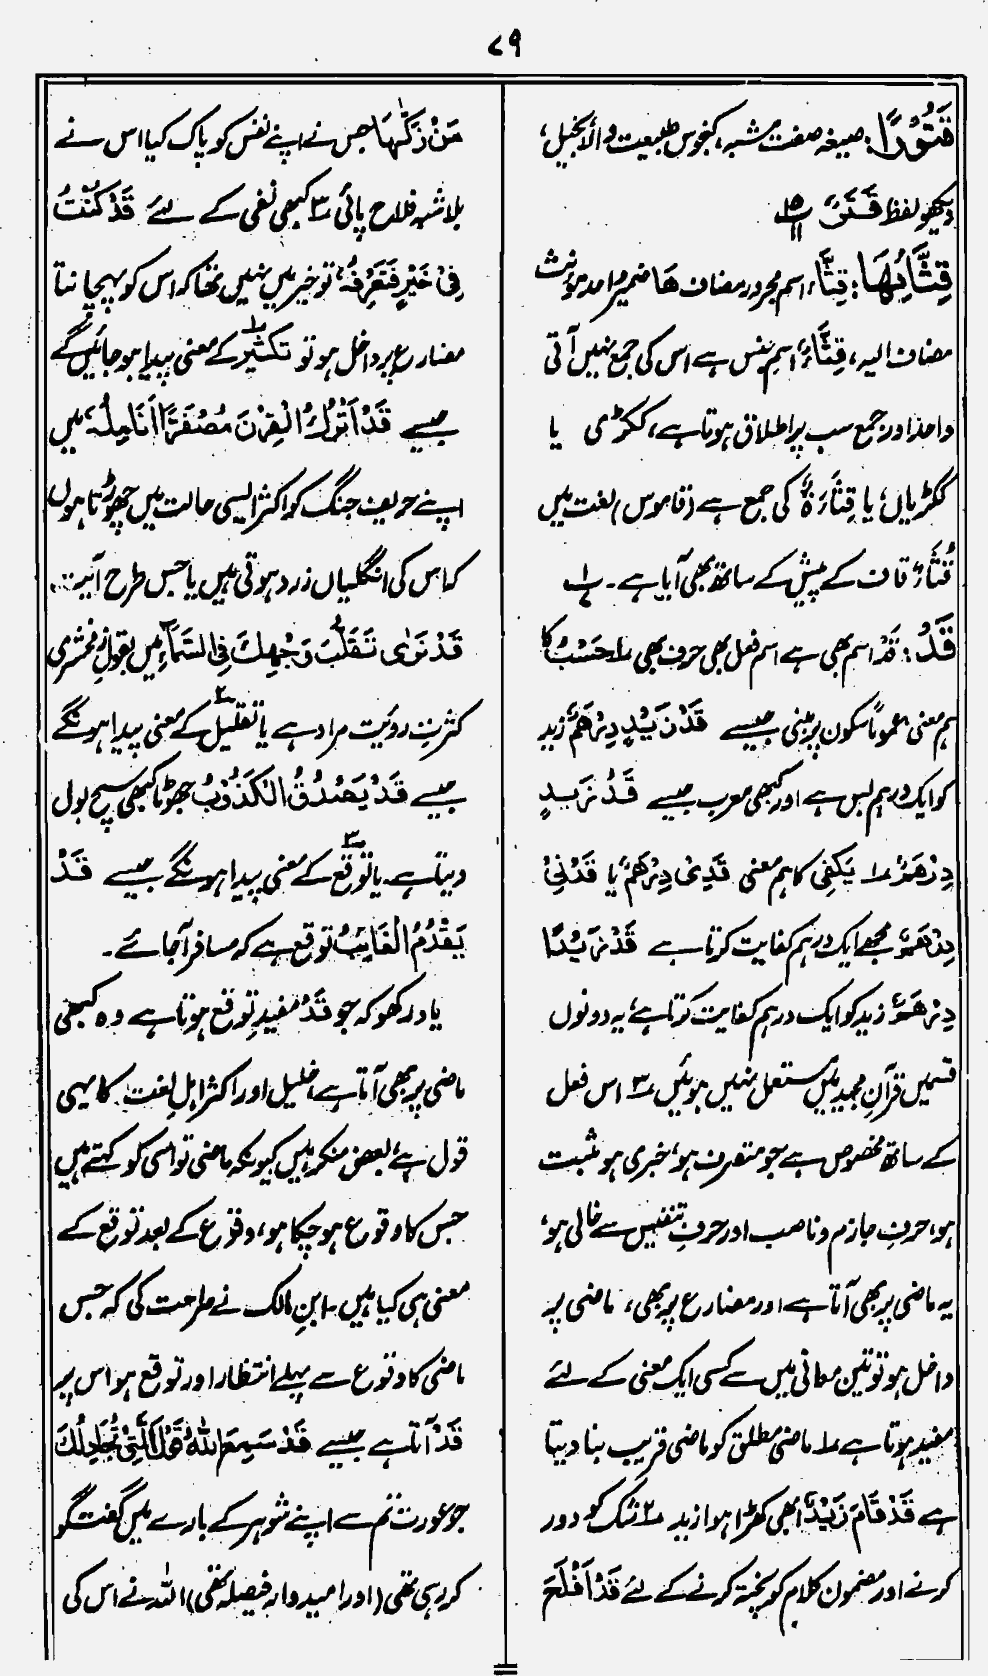 ۷۹
قَتُوْرًا: صیغہ صفت مشبہ، کنجوس طبیعت والا بخیل،
دیکھو لفظ قَتَرَ ۱۵/۱۱
قِثَّائِهَا: قِثَّاء، اسم مجرور مضاف ھَا ضمیر واحد مونث
مضاف الیہ، قِثَّاءٌ، اسم جنس ہے اس کی جمع نہیں آتی
واحد اور جمع سب پر اطلاق ہوتا ہے، ککڑی یا
ککڑیاں، یا قِثَّارَۃٌ کی جمع ہے (قاموس) لغت میں
قُثَّاءٌ قاف کے پیش کے ساتھ بھی آیا ہے۔ ۱/۷
قَدْ: قَدْ اسم بھی ہے اسم فعل بھی حرف بھی ۱ حَسْبُ کا
ہم معنی عموماً سکون پر مبنی جیسے قَدْ زَیْدٍ دِرْهَمٌ زید
کو ایک درہم بس ہے اور کبھی معرب جیسے قَدُ زَیْدٍ
دِرْهَمٌ ۲ یَکْفِی کا ہم معنی قَدِیْ دِرْهَمٌ یا قَدْنِیْ
دِرْهَمٌ مجھے ایک درہم کفایت کرتا ہے قَدْ زَیْدًا
دِرْهَمٌ زید کو ایک درہم کفایت کرتا ہے، یہ دونوں
قسمیں قرآن مجید میں مستعمل نہیں ہوئیں ۳ اس فعل
کے ساتھ مخصوص ہے جو متصرف ہو، خبری ہو مثبت
ہو، حرفِ جازم و ناصب اور حرفِ تنفیس سے خالی ہو،
یہ ماضی پر بھی آتا ہے اور مضارع پر بھی، ماضی پر
داخل ہو تو تین معانی میں سے کسی ایک معنی کے لئے
مفید ہوتا ہے ۱ ماضی مطلق کو ماضی قریب بنا دیتا
ہے قَدْ قَامَ زَیْدٌ ابھی کھڑا ہوا زید ۲ شک کو دور
کرنے اور مضمون کلام کو پختہ کرنے کے لئے قَدْ اَفْلَحَ
مَنْ زَکّٰهَا جس نے اپنے نفس کو پاک کیا اس نے
بلا شبہ فلاح پائی ۳ کبھی نفی کے لئے قَدْ کُنْتُ
فِیْ خَیْرٍ فَتَعْرِفُہٗ، تو خیر میں نہیں تھا کہ اس کو پہچانتا
مضارع پر داخل ہو تو تکثیر ۱ کے معنی پیدا ہو جائیں گے
جیسے قَدْ اَتْرُكُ الْقِرْنَ مُصْفَرًّا اَنَامِلُہٗ، میں
اپنے حریف جنگ کو اکثر ایسی حالت میں چھوڑتا ہوں
کہ اس کی انگلیاں زرد ہوتی ہیں یا جس طرح آیہ...
قَدْ نَرٰی تَقَلُّبَ وَجْهِكَ فِی السَّمَآءِ میں بقول زمخشری
کثرتِ رویت مراد ہے یا تقلیل ۲ کے معنی پیدا ہونگے
جیسے قَدْ یَصْدُقُ الْکَذُوْبُ جھوٹا کبھی سچ بول
دیتا ہے۔ یا توقع ۳ کے معنی پیدا ہونگے جیسے قَدْ
یَقْدُمُ الْغَائِبُ توقع ہے کہ مسافر آ جائے۔
یاد رکھو کہ جو قَدْ مفیدِ توقع ہوتا ہے وہ کبھی
ماضی پر بھی آتا ہے، خلیل اور اکثر اہلِ لغت کا یہی
قول ہے، بعض منکر ہیں کیونکہ ماضی تو اسی کو کہتے ہیں
جس کا وقوع ہو چکا ہو، وقوع کے بعد توقع کے
معنی ہی کیا ہیں۔ ابن مالک نے صراحت کی کہ جس
ماضی کا وقوع سے پہلے انتظار اور توقع ہو اس پر
قَدْ آتا ہے جیسے قَدْ سَمِعَ اللّٰهُ قَوْلَ الَّتِیْ تُجَادِلُكَ
جو عورت تم سے اپنے شوہر کے بارے میں گفتگو
کر رہی تھی (اور امیدوار فیصلہ تھی) اللہ نے اس کی